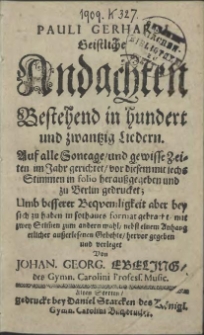 1909. K 327.
PAULI GERHAR
Geistliche
Andachten
Bestehend in hundert
und zwantzig Liedern.
Auf alle Sontage/und gewisse Zei-
ten im Jahr gerichtet/ vor diesem mit sechs
Stimmen in folio herausgegeben und
zu Berlin gedrucket;
Umb besserer Beqvemligkeit aber bey
sich zu haben in format gebracht/ mit
zwey Stimmen zum andern mahl/ nebst einem Anhang
etlicher außerlesenen Gebehte/ hervor gegeben
und verleget
Von
JOHAN. GEORG. EBELING,
des Gymn. Carolini Profess. Music.
Alten Stettin/
Gedruckt bey Daniel Starcken des Königl.
Gymn. Carolini Buchdrucker.